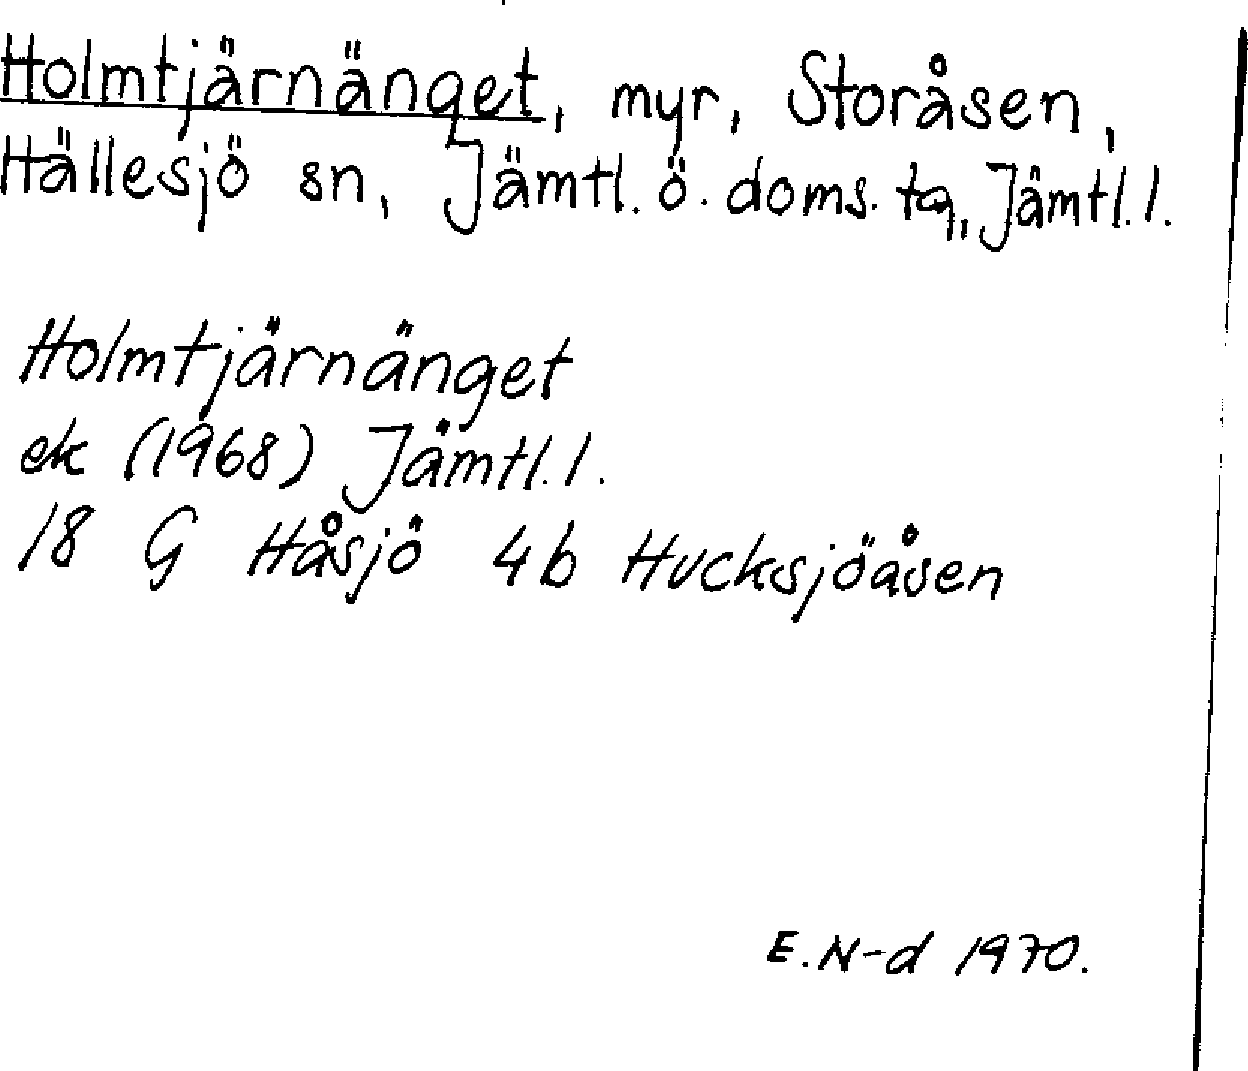 Holmtjärnänget, myr, Storåsen,
Hällesjö sn, Jämtl. ö. doms. tg, Jämtl. l.
Holmtjärnänget
ek (1968) Jämtl. l.
18 G Håsjö 4b Hucksjöåsen
E. N-d 1970.